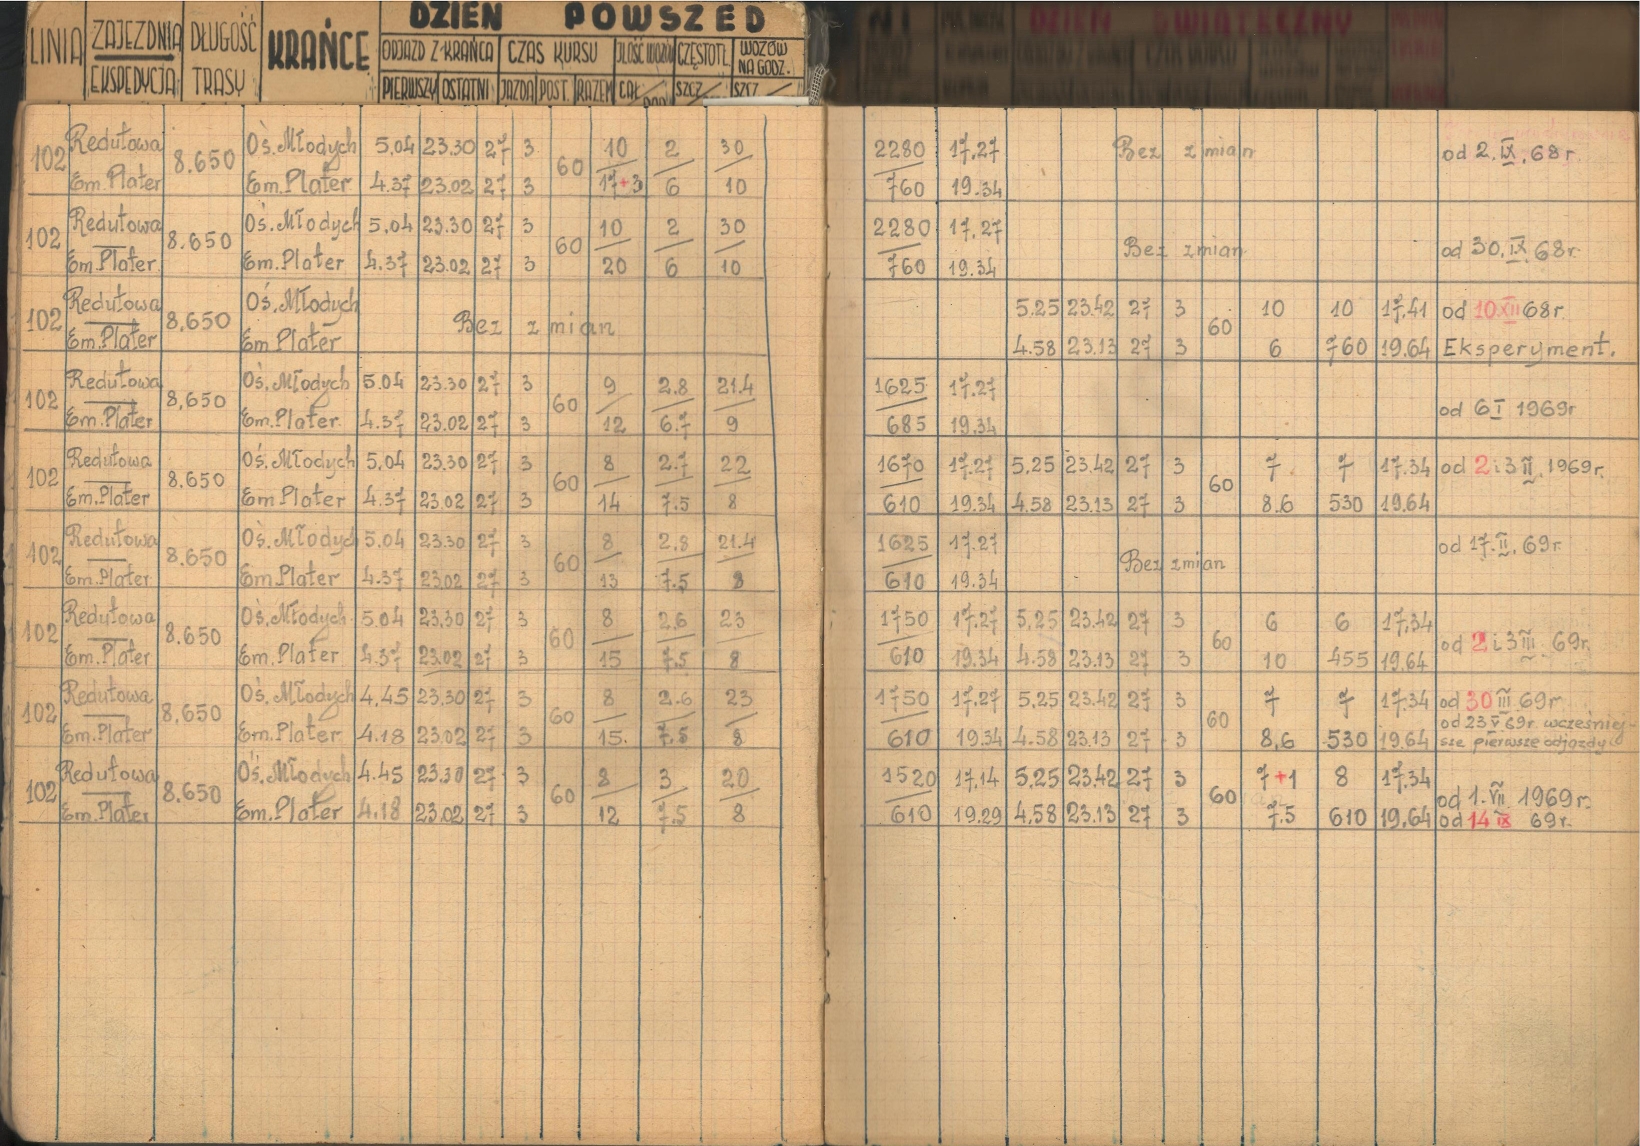 DZIEŃ POWSZED
LINIA ZAJEZDNIA DŁUGOŚĆ KRAŃCE ODJAZD Z KRAŃCA CZAS KURSU ILOŚĆ WOZÓW CZĘSTOTL. WOZÓW NA GODZ.
EKSPEDYCJA TRASY PIERWSZY OSTATNI JAZDA POST. RAZEM CAŁ SZCZ SZCZ
DZIEŃ ŚWIĄTECZNY
102 Redutowa 8.650 Oś. Młodych 5.04 23.30 27 3 60 10 2 30 2280 17.27 Bez zmian od 2.IX.68r.
Em. Plater Em. Plater 4.37 23.02 27 3 17+3 6 10 760 19.34
102 Redutowa 8.650 Oś. Młodych 5.04 23.30 27 3 60 10 2 30 2280 17.27 Bez zmian od 30.IX.68r.
Em. Plater Em. Plater 4.37 23.02 27 3 20 6 10 760 19.34
102 Redutowa 8,650 Oś. Młodych Bez zmian 5.25 23.42 27 3 60 10 10 17.41 od 10XII 68r.
Em. Plater Em Plater 4.58 23.13 27 3 6 760 19.64 Eksperyment.
102 Redutowa 8,650 Oś. Młodych 5.04 23.30 27 3 60 9 2.8 21.4 1625 17.27 od 6 I 1969r
Em. Plater Em. Plater. 4.37 23.02 27 3 12 6.7 9 685 19.34
102 Redutowa 8.650 Oś. Młodych 5.04 23.30 27 3 60 8 2.7 22 1670 17.27 5.25 23.42 27 3 60 7 7 17.34 od 2 i 3 II. 1969r.
Em. Plater Em Plater 4.37 23.02 27 3 14 7.5 8 610 19.34 4.58 23.13 27 3 8.6 530 19.64
102 Redutowa 8.650 Oś. Młodych 5.04 23.30 27 3 60 8 2,8 21.4 1625 17.27 Bez zmian od 17.II.69r.
Em. Plater Em. Plater 4.37 23.02 27 3 13 7.5 8 610 19.34
102 Redutowa 8.650 Oś. Młodych 5.04 23.30 27 3 60 8 2.6 23 1750 17.27 5.25 23.42 27 3 60 6 6 17.34 od 2 i 3 III. 69r.
Em. Plater Em. Plater 4.37 23.02 27 3 15 7.5 8 610 19.34 4.58 23.13 27 3 10 455 19.64
102 Redutowa 8,650 Oś. Młodych 4.45 23.30 27 3 60 8 2.6 23 1750 17.27 5.25 23.42 27 3 60 7 7 17.34 od 30 III 69r.
od 23 V 69r. wcześniej-
Em. Plater Em. Plater 4.18 23.02 27 3 15. 7.5 8 610 19.34 4.58 23.13 27 3 8,6 530 19.64 sze pierwsze odjazdy
102 Redutowa 8.650 Oś. Młodych 4.45 23.30 27 3 60 8 3 20 1520 17,14 5.25 23.42 27 3 60 7+1 8 17.34 od 1.VII. 1969r.
Em. Plater Em. Plater 4.18 23.02 27 3 12 7.5 8 610 19.29 4.58 23.13 27 3 7.5 610 19,64 od 14 IX 69r.